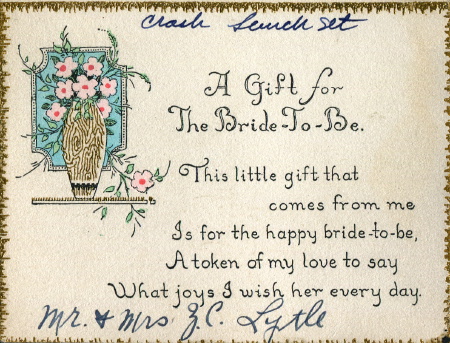 Crash Lunch set
A Gift for
The Bride-To-Be.
This little gift that
comes from me
Is for the happy bride-to-be,
A token of my love to say
What joys I wish her every day.
Mr. & Mrs Z.C. Lytle